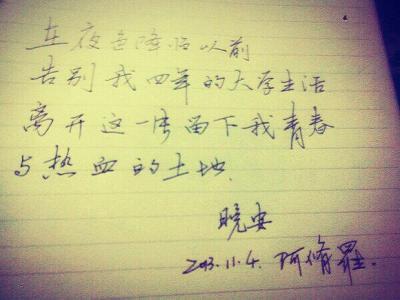 在夜色降临以前
告别我四年的大学生活
离开这一片留下我青春
与热血的土地.
晚安
2013.11.4. 阿修罗.